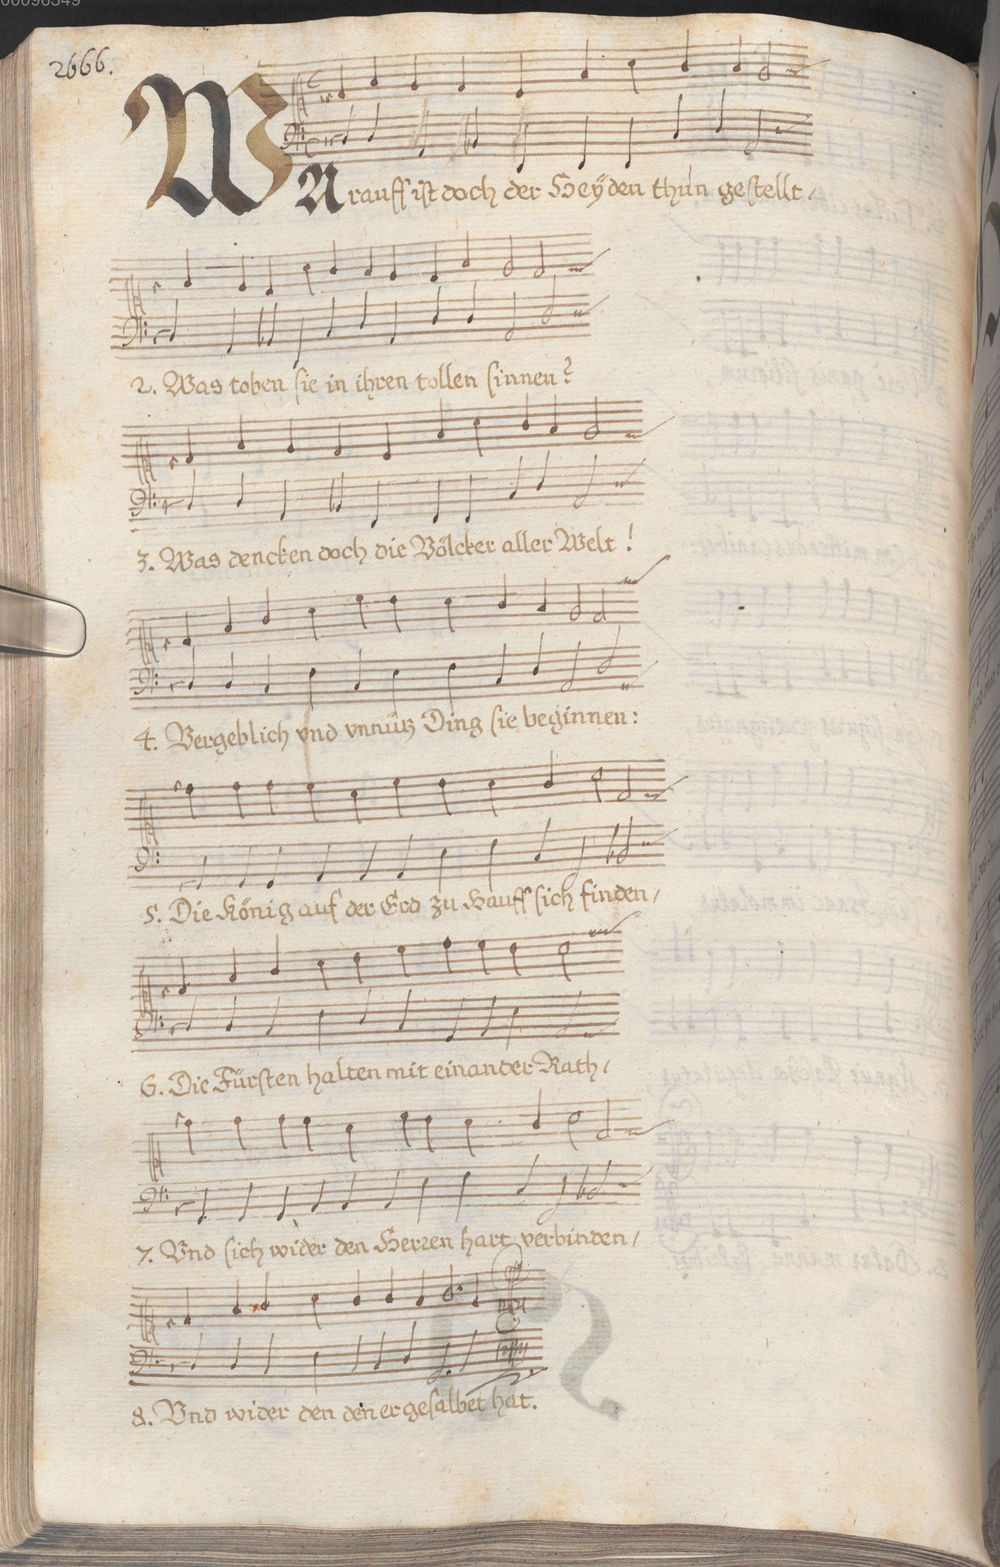 00096349
2666.
WArauff ist doch der Heyden thun gestellt,
2. Was toben sie in ihren tollen sinnen?
3. Was dencken doch die Völcker aller Welt!
4. Vergeblich vnd vnnütz Ding sie beginnen:
5. Die König auf der Erd zu Hauff sich finden,
6. Die Fürsten halten mit einander Rath,
7. Vnd sich wider den Herren hart verbinden,
8. Vnd wider den den er gesalbet hat.